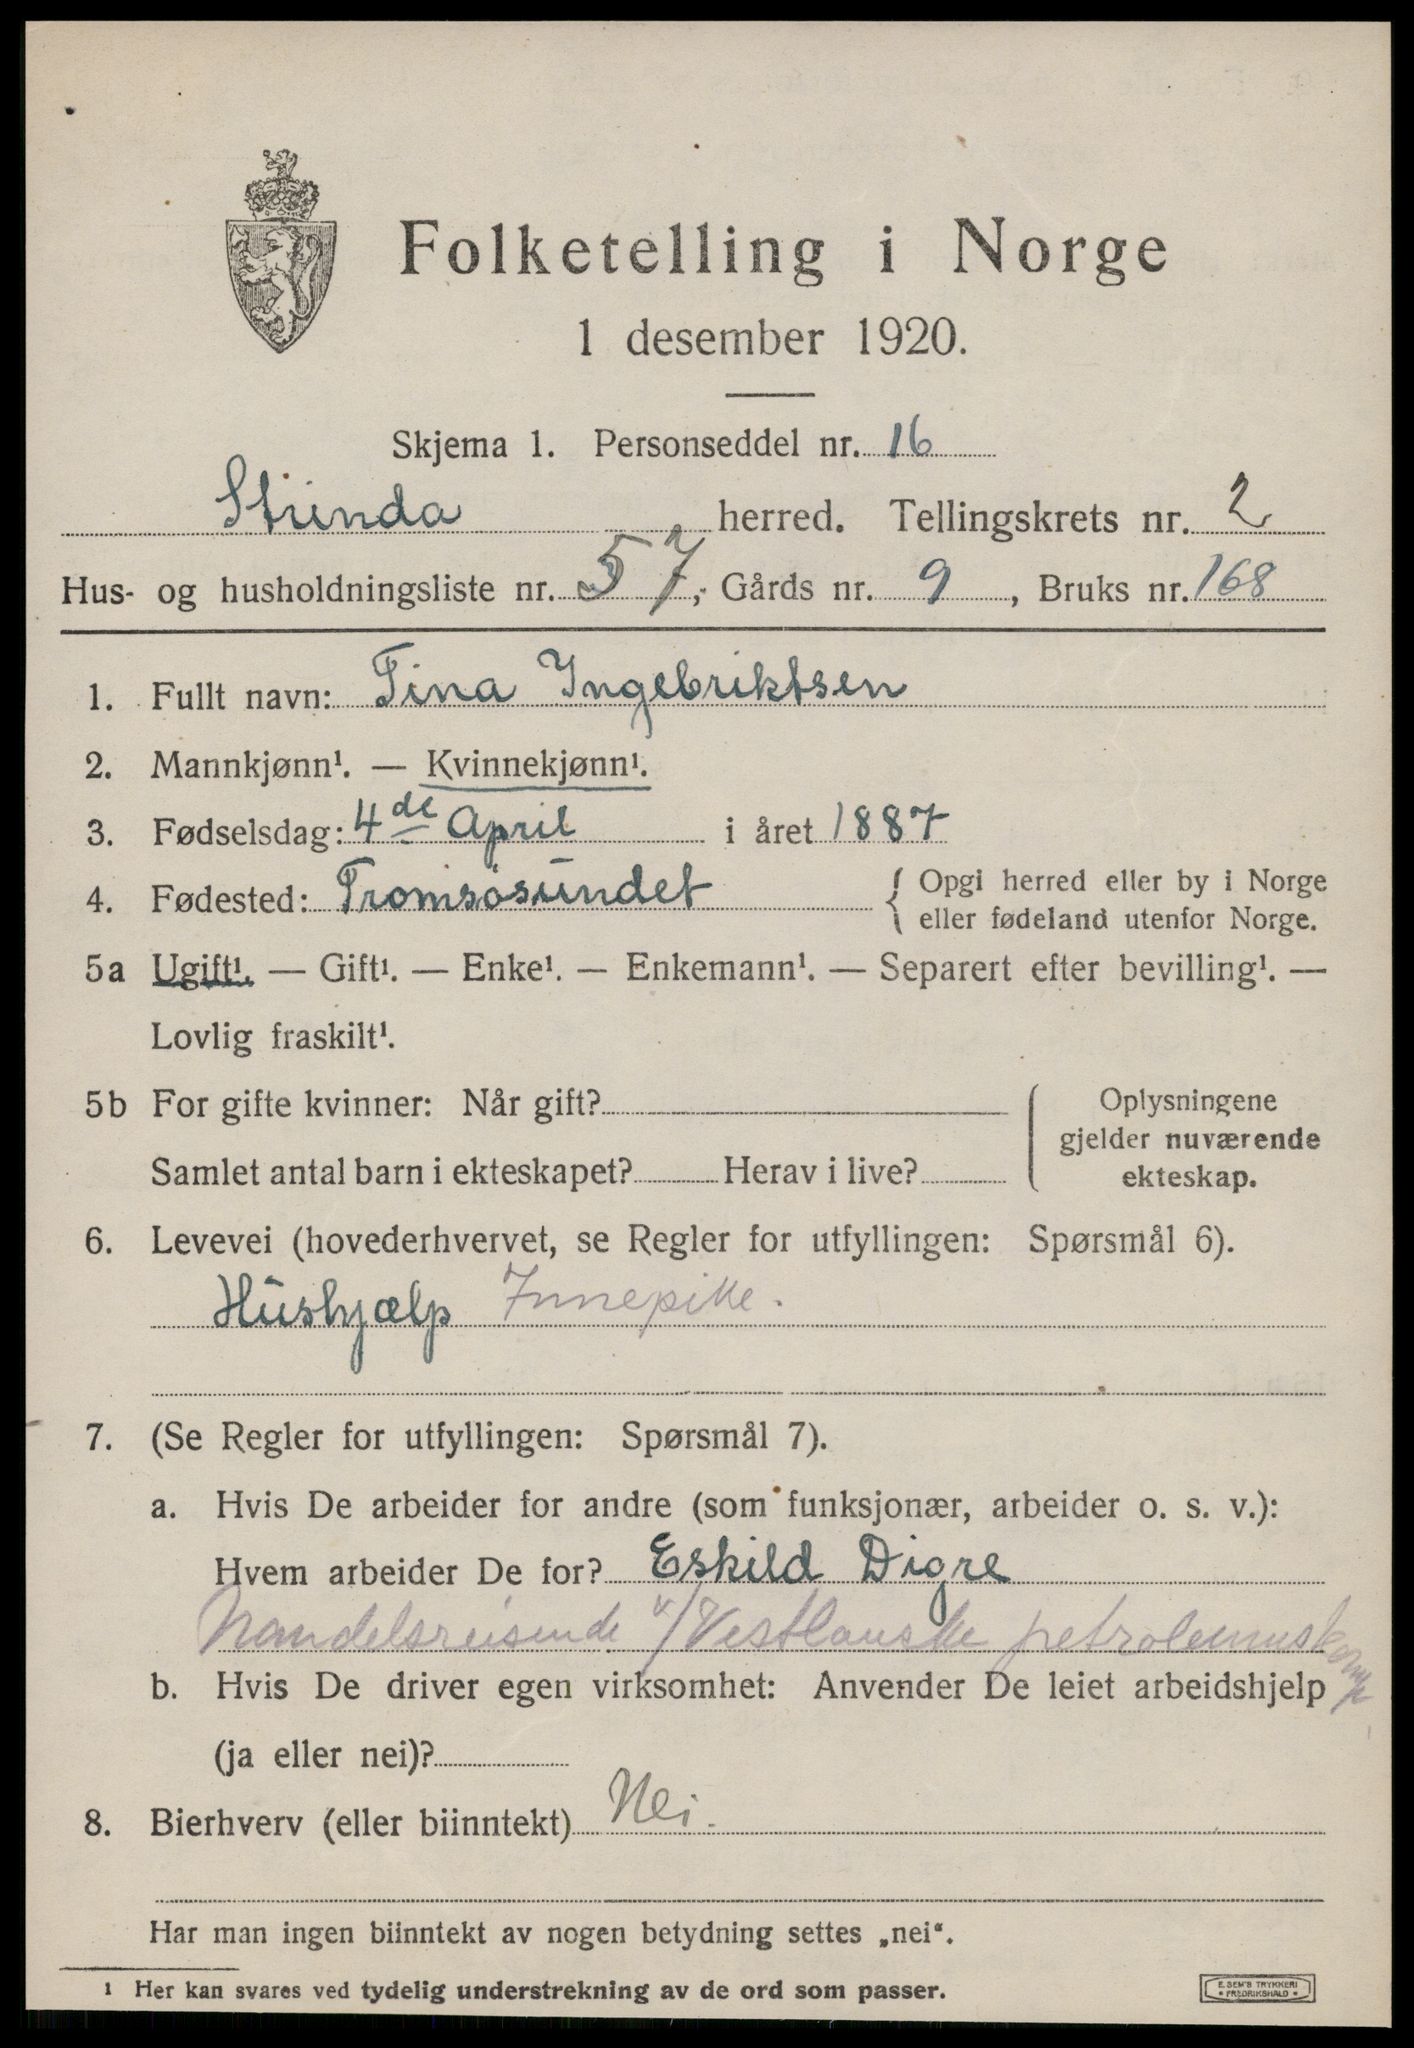 Folketelling i Norge
1 desember 1920.
Skjema 1. Personseddel nr. 16
Strinda herred. Tellingskrets nr. 2
Hus- og husholdningsliste nr. 57, Gårds nr. 9, Bruks nr. 168
1. Fullt navn: Tina Ingebriktsen
2. Mannkjønn¹. — Kvinnekjønn¹.
3. Fødselsdag: 4de April i året 1887
4. Fødested: Tromsøsundet { Opgi herred eller by i Norge
eller fødeland utenfor Norge.
5a Ugift¹. — Gift¹. — Enke¹. — Enkemann¹. — Separert efter bevilling¹. —
Lovlig fraskilt¹.
5b For gifte kvinner: Når gift?
Samlet antal barn i ekteskapet? Herav i live?
Oplysningene
gjelder nuværende
ekteskap.
6. Levevei (hovederhvervet, se Regler for utfyllingen: Spørsmål 6).
Hushjælp Innepike.
7. (Se Regler for utfyllingen: Spørsmål 7).
a. Hvis De arbeider for andre (som funksjonær, arbeider o. s. v.):
Hvem arbeider De for? Eskild Digre
Handelsreisende v/Vestlanske petroleumskomp
b. Hvis De driver egen virksomhet: Anvender De leiet arbeidshjelp
(ja eller nei)?
8. Bierhverv (eller biinntekt) Nei.
Har man ingen biinntekt av nogen betydning settes „nei“.
1 Her kan svares ved tydelig understrekning av de ord som passer.
E. SEM'S TRYKKERI
• FREDRIKSHALD •